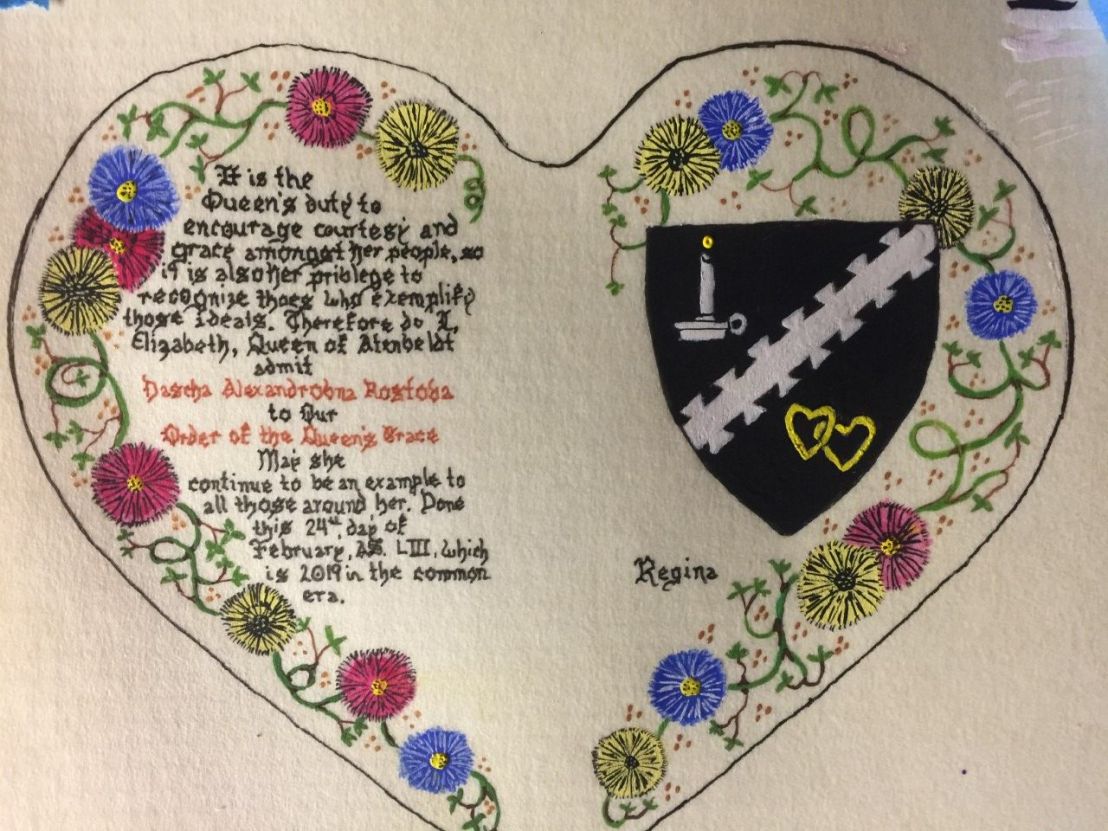 It is the
Queen's duty to
encourage courtesy and
grace amongst her people, so
it is also her privlege to
recognize thoes who exemplify
those ideals. Therefore do I,
Elizabeth, Queen of Atenveldt
admit
Dascha Alexandrovna Rostova
to Our
Order of the Queen's Grace
May she
continue to be an example to
all those around her. Done
this 24th day of
February, AS. LIII, which
is 2019 in the common
era.
Regina